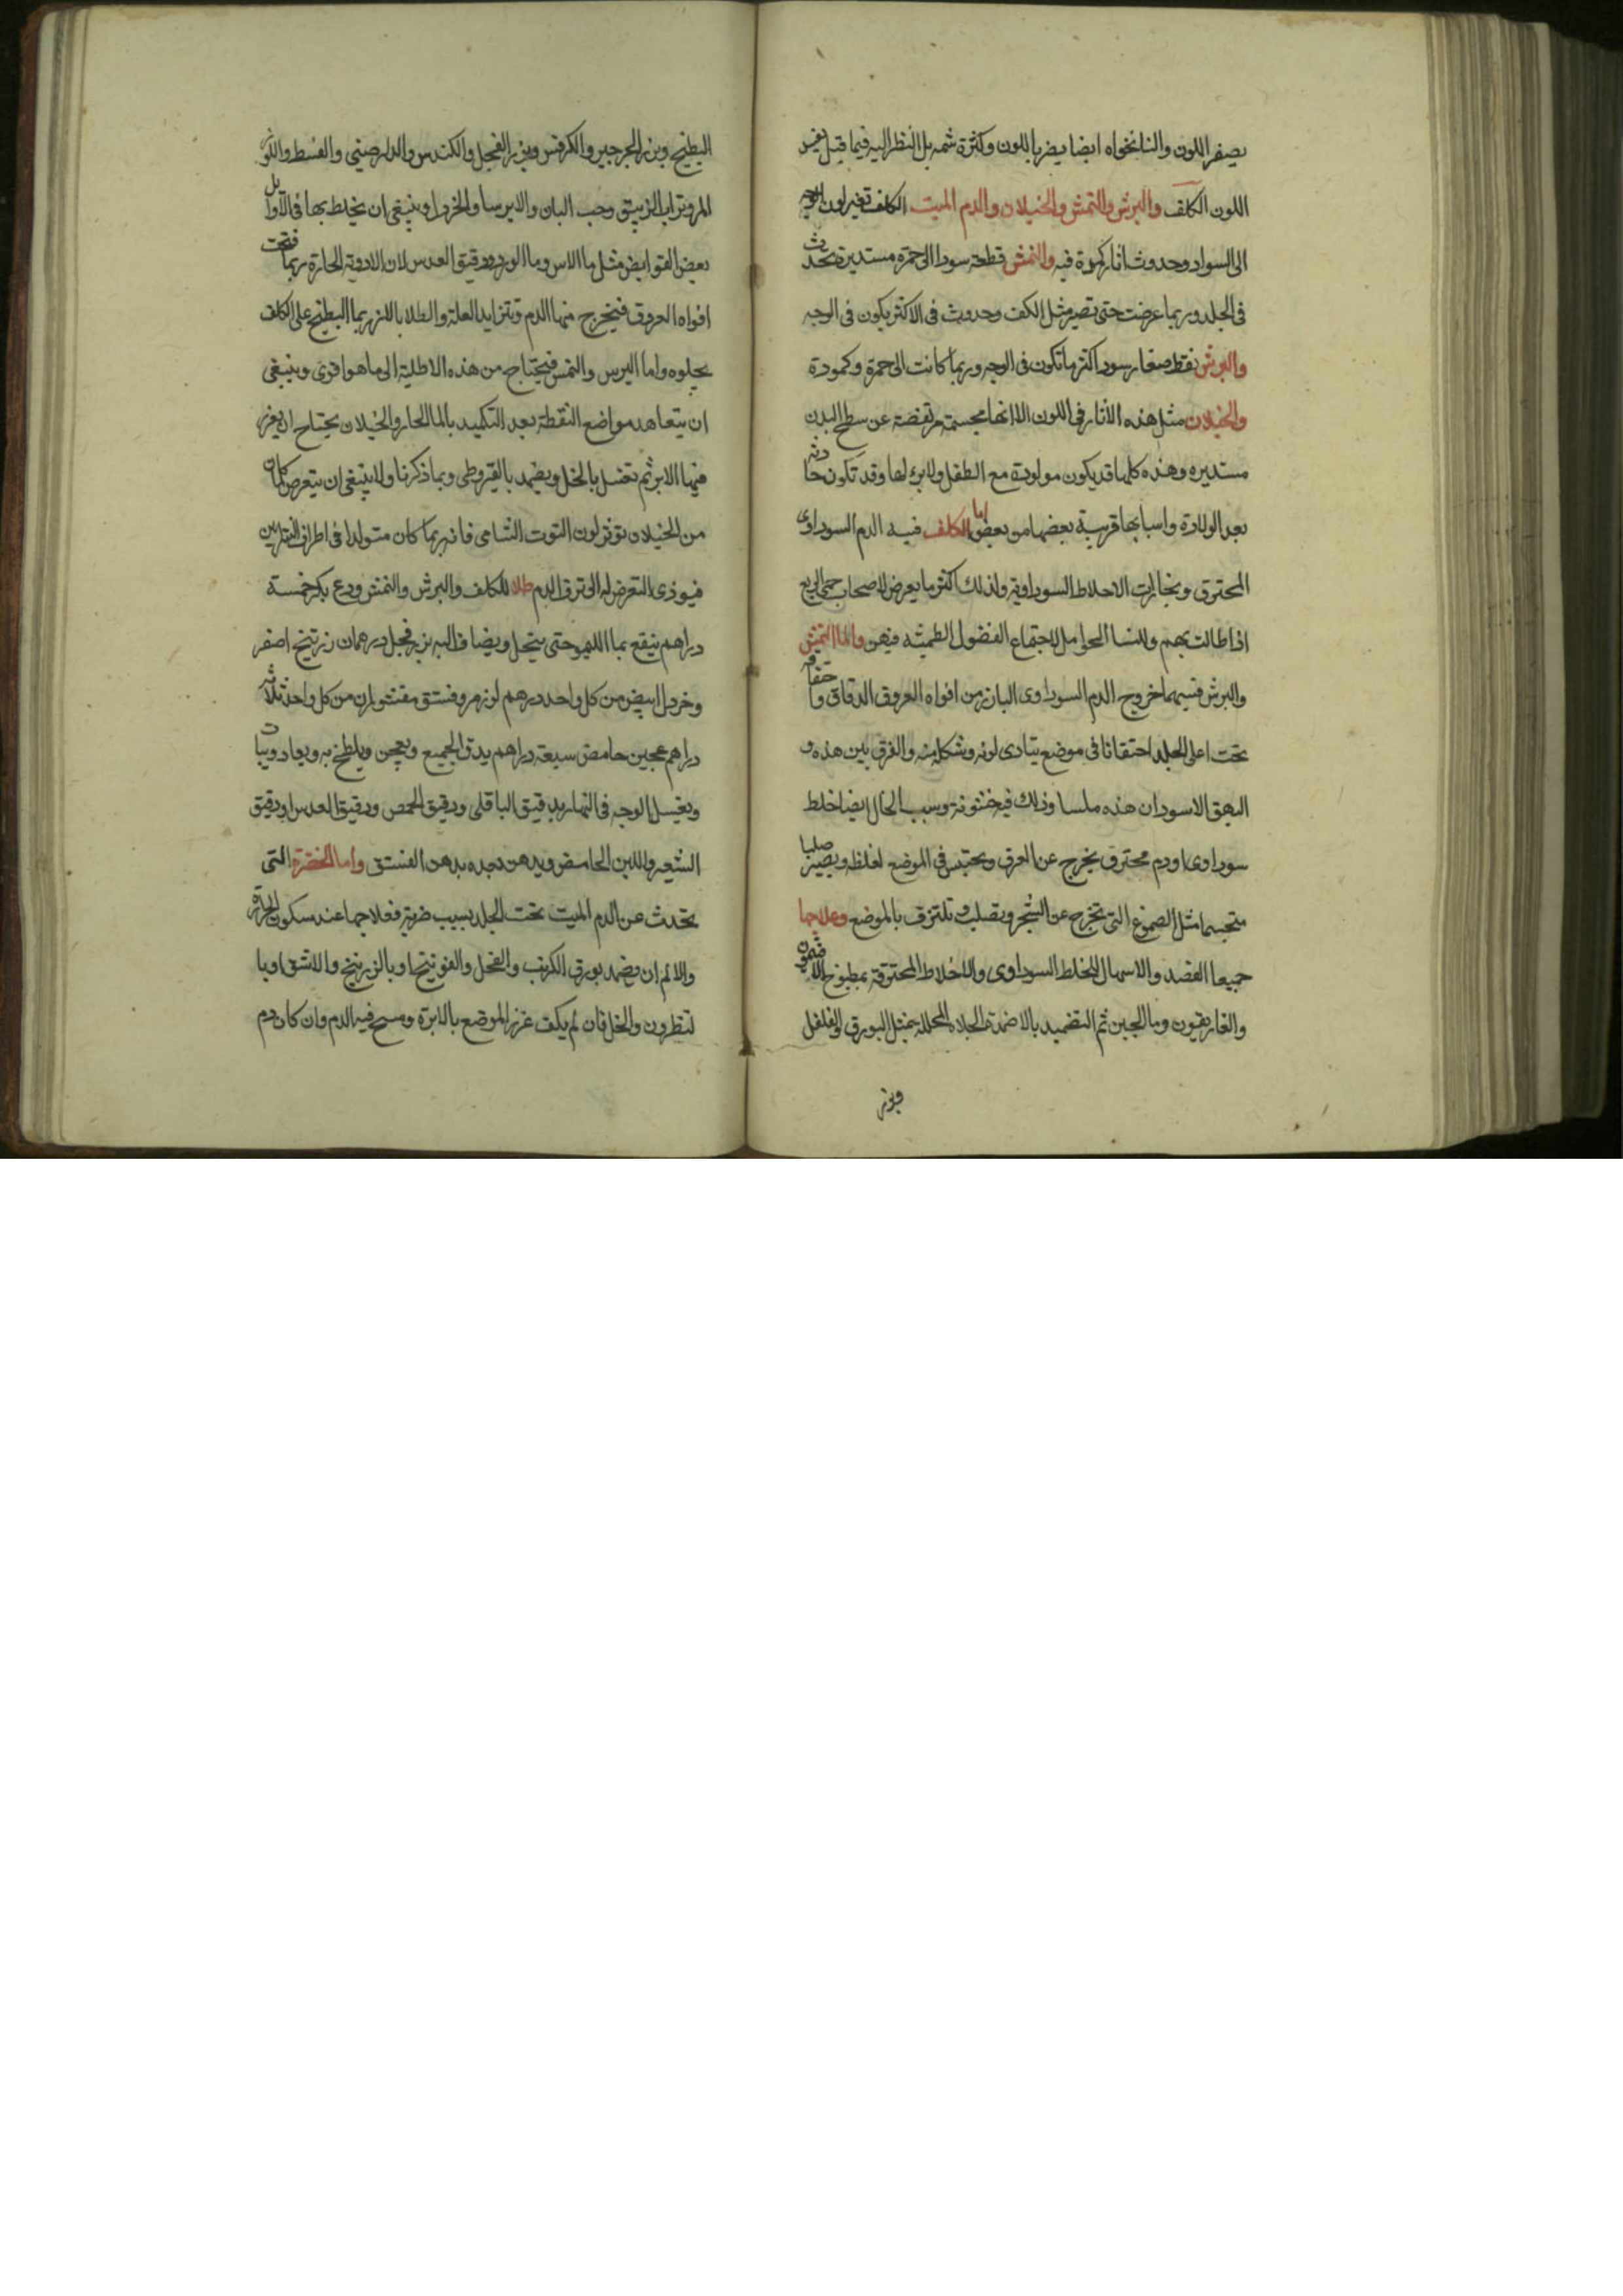 يصفر اللون والنانخواه ايضا يضر باللون وكثرة شمه بل النظر اليه فيما قيل يغير
اللون الكلف والبرش والنمش والخيلان والدم الميت الكلف تغير لون الوجه
الى السواد وحدوث اثار كمدة فيه والنمش قطعة سودا الى حمرة مستديرة تحدث
فى الجلد وربما عرضت حتى تصير مثل الكف وحدوث فى الاكثر يكون فى الوجه
والبرش نقط صغار سود اكثر ما تكون فى الوجه وربما كانت الى حمرة وكمودة
والخيلان مثل هذه الاثار فى اللون الا انها مجسمة مرتفعة عن سطح البدن
مستديره وهذه كلها قد يكون مولودة مع الطفل ولا برء لها وقد تكون حادثة
بعد الولادة واسبابها قريبة بعضها من بعض اما الكلف فسببه الدم السوداوى
المحترق وبخارات الاخلاط السوداوية ولذلك اكثر ما يعرض لاصحاب حمى الربع
اذا طالت بهم وللنسا الحوامل لاجتماع الفضول الطمثيه فيهن واما النمش
والبرش فسببهما خروج الدم السوداوى البارز من افواه العروق الدقاق واحتقانه
تحت اعلى الجلد احتقانا فى موضع يتادى لونه وشكله منه والفرق بين هذه و
البهق الاسود ان هذه ملسا وذلك فيه خشونة وسبب الخال ايضا خلط
سوداوى او دم محترق يخرج عن العرق ويحتبس فى الموضع لغلظه ويصير صلبا
متجسما مثل الصموغ التى تخرج عن الشجر وتصلب وتلتزق بالموضع وعلاجها
جميعا الفصد والاسهال للخلط السوداوى والاخلاط المحترقة بمطبوخ الافتيمون
والغاريقون وما الجبن ثم التضميد بالاضمدة الجلاء المحللة بمثل البورق والفلفل
وبزر
البطيخ وبزر الجرجير والكرفس وبزر الفجل والكندس والدارصينى والقسط واللوز
المر وتراب الزيبق وحب البان والايرسا والخردل وينبغى ان يخلط بها فى الاوايل
بعض القوابض مثل ما الاس وما الورد ودقيق العدس لان الادوية الحارة ربما فتحت
افواه العروق فيخرج منها الدم وتتزايد العلة والطلا بالبزر بما البطيخ على الكلف
يجلوه واما البرس والنمس فيحتاج من هذه الاطلية الى ما هو اقوى وينبغى
ان يتعاهد مواضع النقطة بعد التكميد بالما الحار والخيلان يحتاج ان يغرز
فيها الابر ثم تغسل بالخل ويضمد بالقيروطى وبما ذكرنا ولا ينبغى ان يتعرض لما كان
من الخيلان توثى لون التوت الشامى فانه ربما كان متولدا فى اطراف الشرايين
فيوذى التعرض له الى نزف الدم طلا للكلف والبرش والنمش ودع بكر خمسة
دراهم ينقع بما الليمو حتى ينحل ويضاف اليه بزر فجل درهمان زرنيخ اصفر
وخردل ابيض من كل واحد درهم لوز مر وفستق مقشوران من كل واحد ثلاثه
دراهم عجين حامض سبعة دراهم يدق الجميع ويعجن ويلطخ به ويعاد ويبات
ويغسل الوجه فى النهار بدقيق الباقلى ودقيق الحمص ودقيق العدس او دقيق
الشعير واللبن الحامض ويدهن بعده بدهن الفستق واما الخضرة التى
تحدث عن الدم الميت تحت الجلد بسبب ضربة فعلاجها عند سكون الحرارة
والالم ان يضمد بورق الكرنب والفجل والفوتنج او بالزرنيخ والاشق او با
لنطرون والخل فان لم يكف غرز الموضع بالابرة ومسح فيه الدم وان كان دم